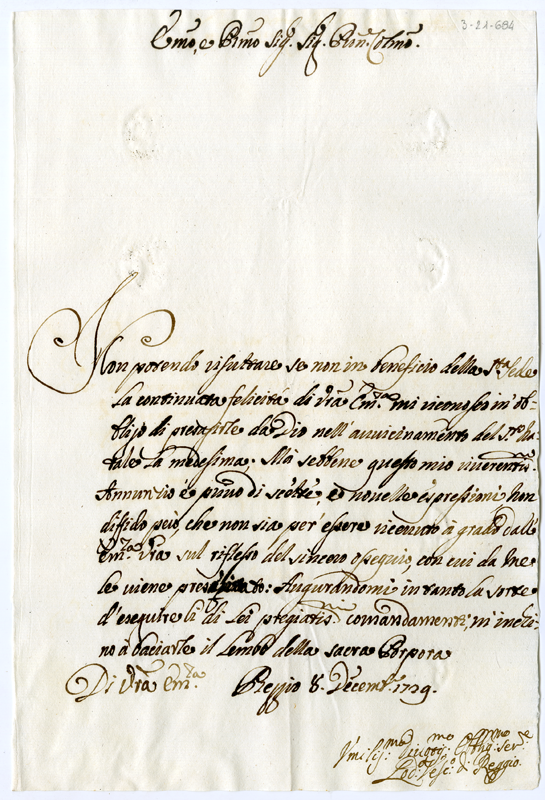 3-21-694
Em̃o, e Rm̃o Sig.r Sig. Pron. Colm̃o.
Non potendo risultare se non in beneficio della Sta Sede
la continuata felicità di Vrã Em.za mi riconosco in ob-
bligo di pregarle da Dio nell'avvicinamento del S.to Na-
tale la medesima; Mà sebbene questo mio riverentis.mo
Annunzio è privo di scelte, e novelle espressioni, non
diffido però, che non sia per essere ricevuto à grado dall'
Em.za Vrã sul riflesso del sincero ossequio con cui da me
le viene : Augurandomi intanto la sorte
d'esequire li di Lei pregiatis.mi comandamenti, m'inchi-
no à baciarle il Lembo della sacra Porpora
Di Vrã Em.za Reggio 8. Decemb.e 1729.
Vmilis.mo Divotis.mo Obblig. Ser.e
Lod.o Vesc.o di Reggio.